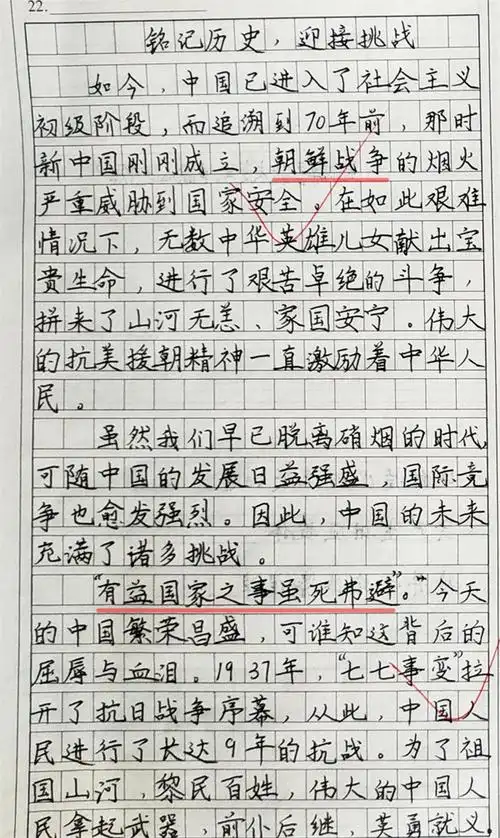 22.
铭记历史，迎接挑战
如今，中国已进入了社会主义
初级阶段，而追溯到70年前，那时
新中国刚刚成立，朝鲜战争的烟火
严重威胁到国家安全。在如此艰难
情况下，无数中华英雄儿女献出宝
贵生命，进行了艰苦卓绝的斗争，
拼来了山河无恙、家国安宁。伟大
的抗美援朝精神一直激励着中华人
民。
虽然我们早已脱离硝烟的时代，
可随中国的发展日益强盛，国际竞
争也愈发强烈。因此，中国的未来
充满了诸多挑战。
“有益国家之事虽死弗避”。“今天
的中国繁荣昌盛，可谁知这背后的
屈辱与血泪。1937年，“七七事变”拉
开了抗日战争序幕，从此，中国人
民进行了长达9年的抗战。为了祖
国山河，黎民百姓，伟大的中国人
民拿起武器，前仆后继，英勇就义